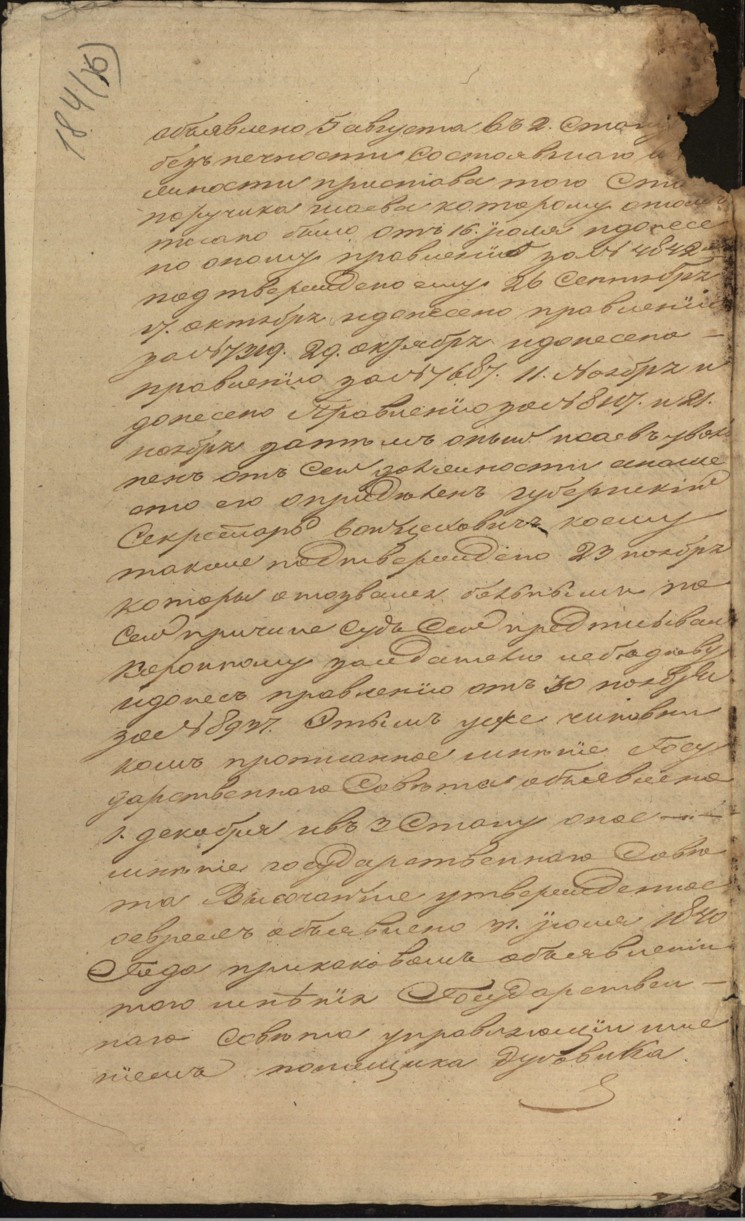 184 (16)
объявлено 5 августа въ 2. Стан
безпечности состоявшаго в
лжности пристава того Ста
поручика Исаева которому о томъ
писано было отъ 16. Іюля и донесе
но оному правленію за № 4842
подтверждено ему 26 Сентября
17. октября и донесено правленію
за № 7319. 29. октября и донесено —
правленію за № 7687. 11. Ноября и
донесено Правленію за № 8117. и 21.
ноября затѣмъ оный Исаевъ уво
ленъ отъ сей должности а на мѣ
сто его опредѣленъ губернскій
Секретарь коему
также подтверждено 23 ноября
который отозвался болѣзнію по
сей причинѣ судъ сей предписывалъ
засѣдателю
и донесъ правленію отъ 30 ноября
за № 8937. Этымъ уже чиновни
комъ прописанное мнѣніе Госу
дарственнаго Совѣта объявлено
1. декабря и въ 3 Стану оное —
мнѣніе государственнаго Совѣ
та Высочайше утвержденное
февраля объявлено 31. Іюля 1840
Года при каковомъ объявленіи
того мнѣнія Государствен —
наго Совѣта управляющій имѣ
ніемъ помѣщика Дубовика.